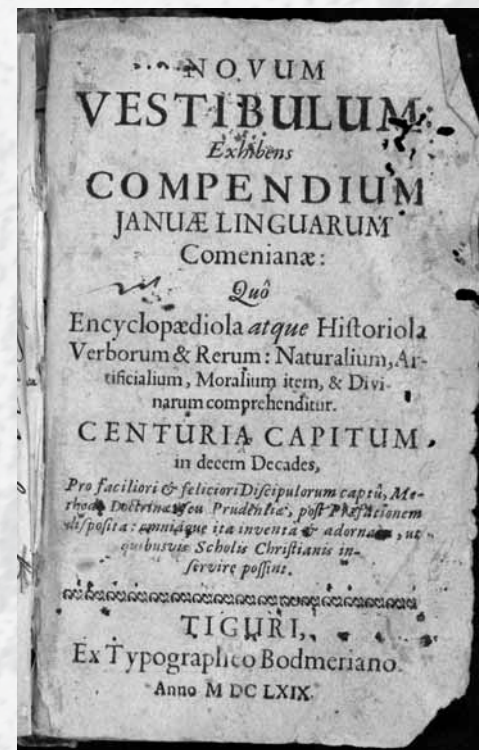 NOVUM
VESTIBULUM
Exhibens
COMPENDIUM
JANUÆ LINGUARUM
Comenianæ:
Quô
Encyclopædiola atque Hiſtoriola
Verborum & Rerum: Naturalium, Ar-
tificialium, Moralium item, & Divi-
narum comprehenditur.
CENTURIA CAPITUM,
in decem Decades,
Pro faciliori & feliciori Diſcipulorum captû, Me-
thodo Doctrinæ ſeu Prudentiæ, poſt Præfationem
diſpoſita: omniaque ita inventa & adornata, ut
quibusvis Scholis Chriſtianis in-
ſervire poſſint.
TIGURI,
Ex Typographeo Bodmeriano.
Anno M DC LXIX.